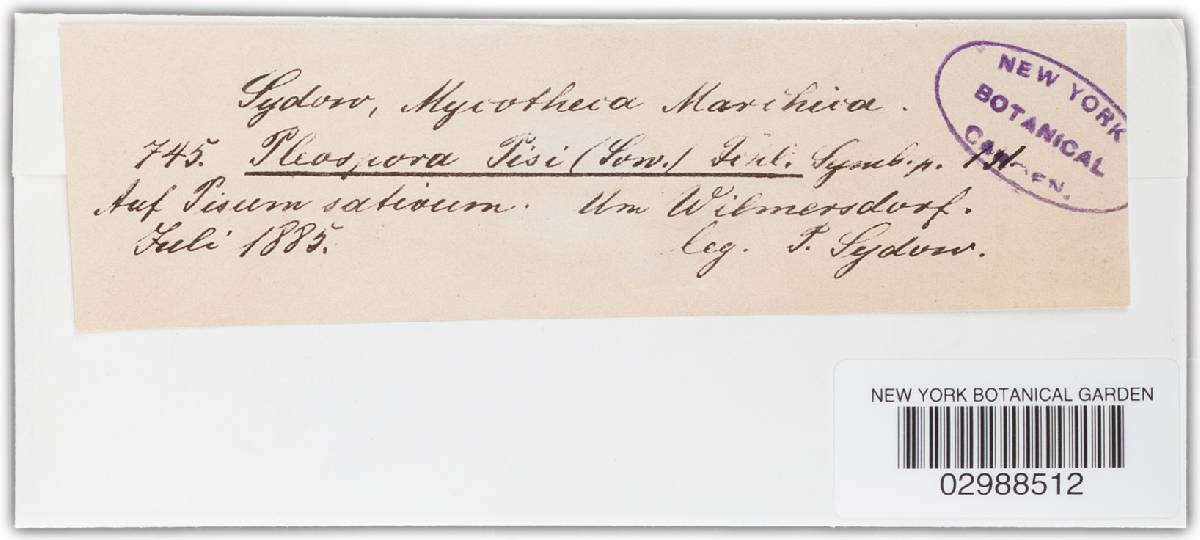 Sydow, Mycotheca Marchica.
745. Pleospora Pisi (Sow.) Fckl. Symb. p. 131.
Auf Pisum sativum. Um Wilmersdorf.
Juli 1885. leg. P. Sydow.
NEW YORK
BOTANICAL
GARDEN.
NEW YORK BOTANICAL GARDEN
02988512